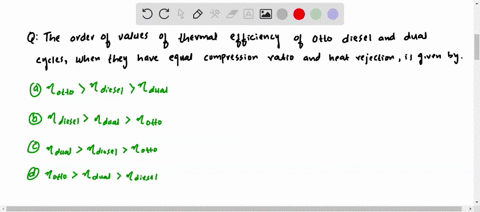 Q: The order of values of thermal efficiency of otto diesel and dual
cycles, when they have equal compression ratio and heat rejection, is given by.
(a) η otto > η diesel > η dual
(b) η diesel > η dual > η otto
(c) η dual > η diesel > η otto
(d) η otto > η dual > η diesel